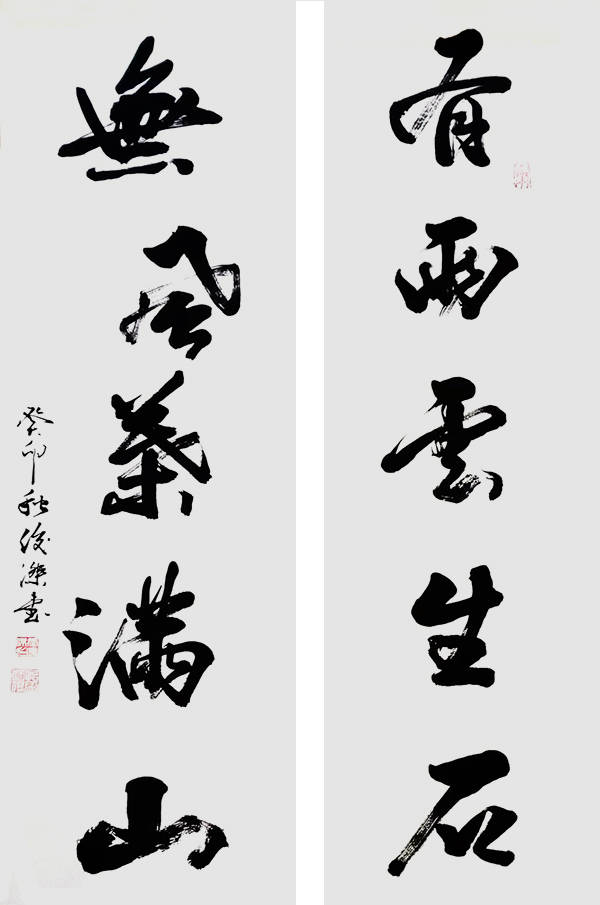 有雨雲生石
無風葉滿山
癸卯秋俊傑書